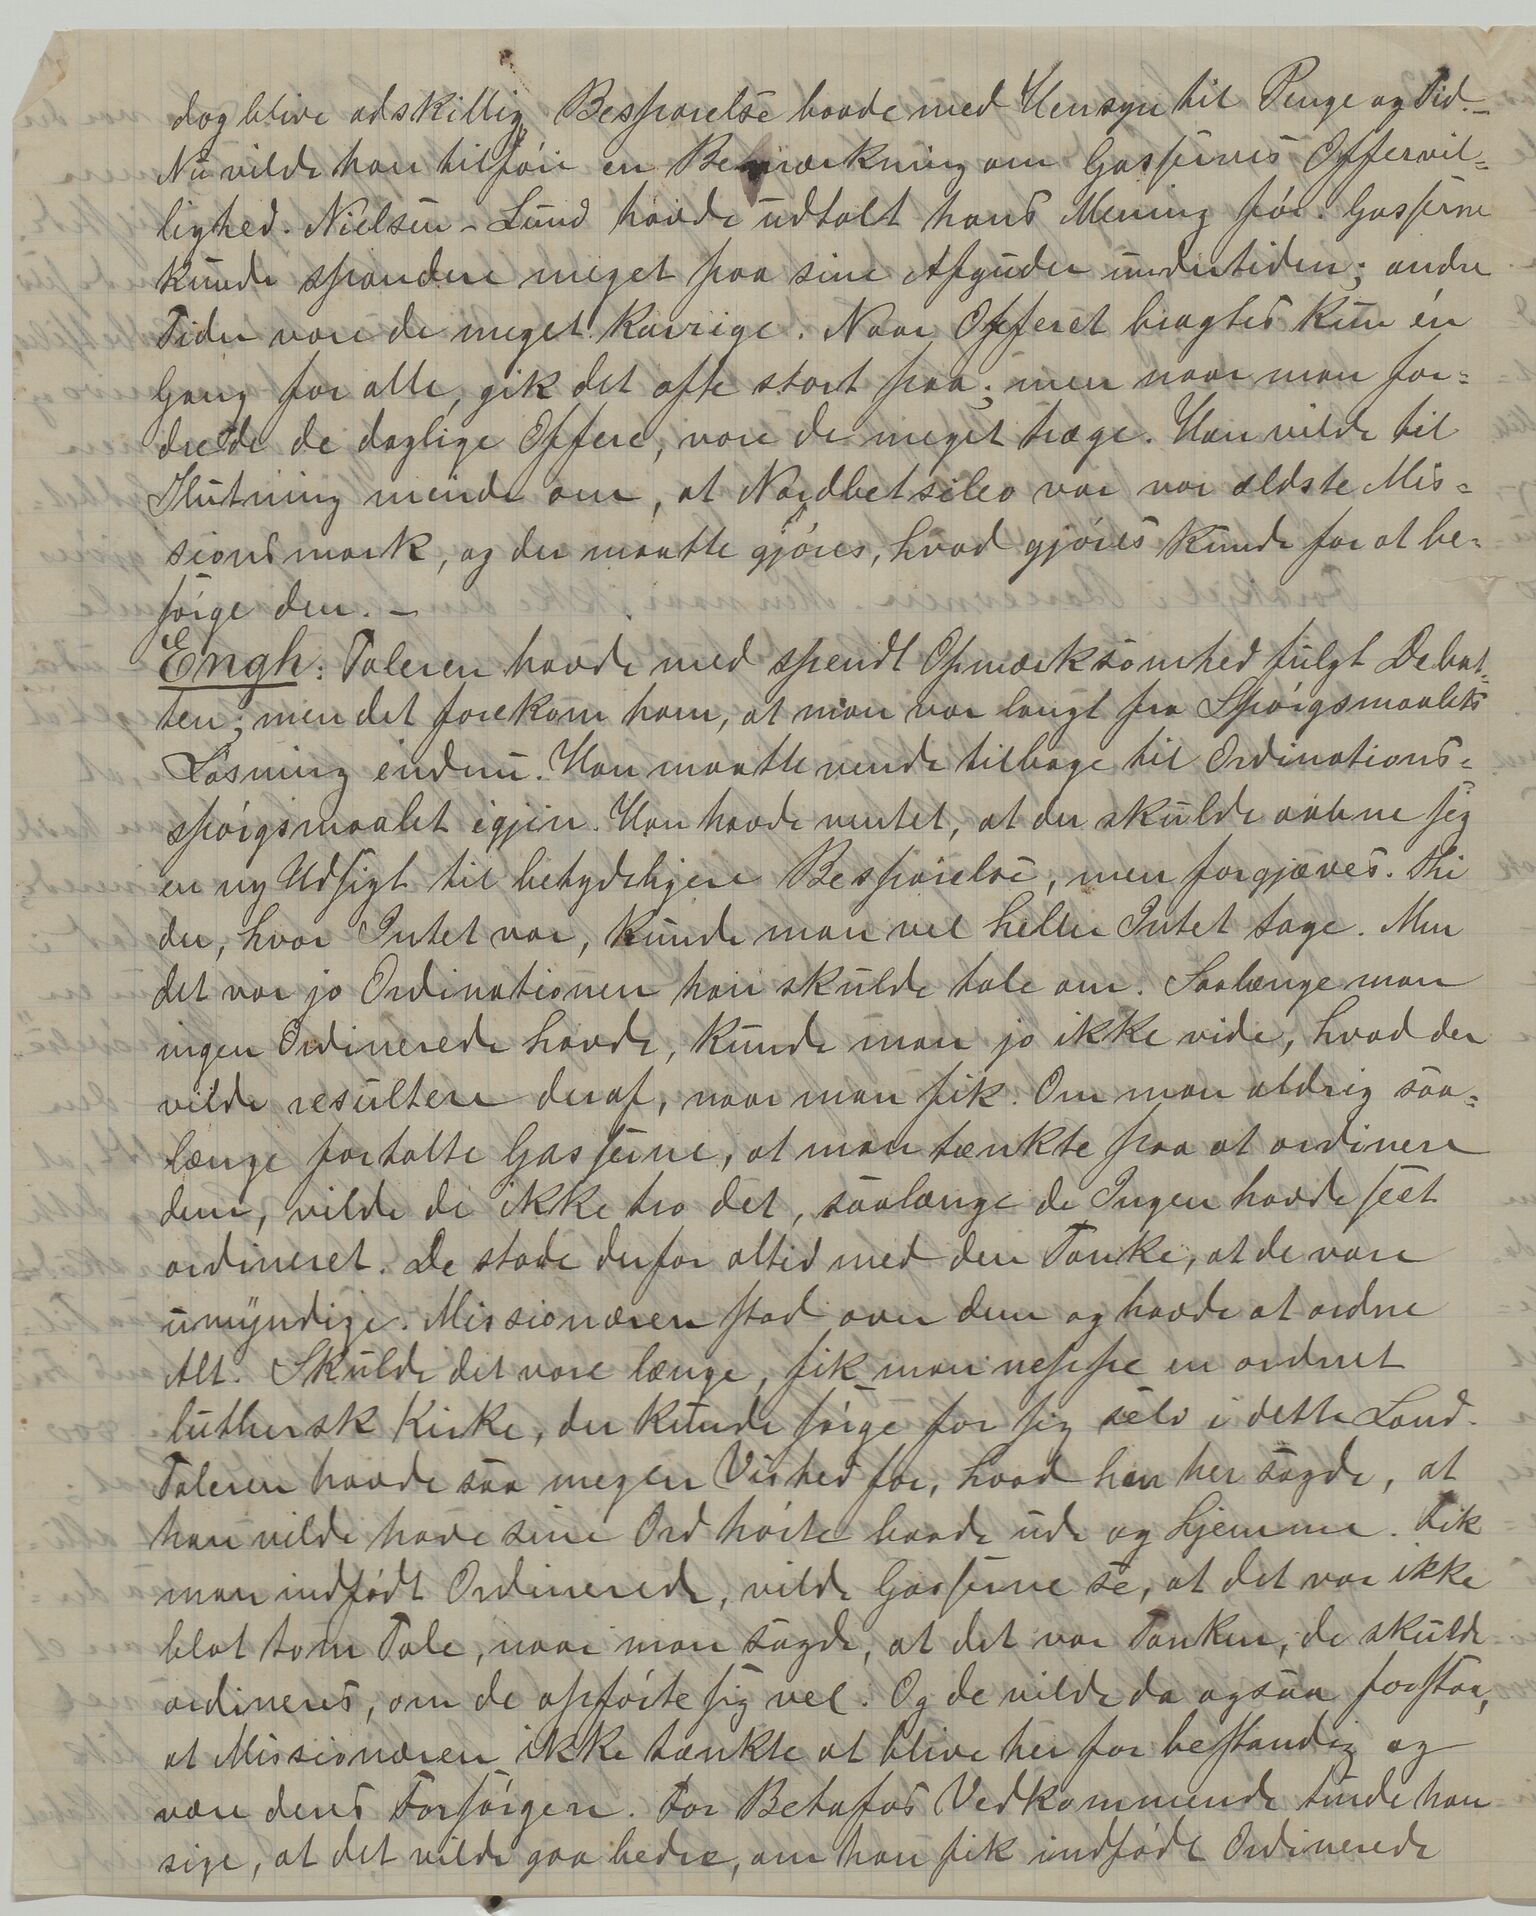 dog blive adskillig Besparelse baade med Hensyn til Penge og Tid. –
Nu vilde han tilföie en Bemærkning om Gassernes Offervil=
lighed. Nielsen-Lund havde udtalt hans Mening för. Gasserne
kunde spandere meget paa sine Afguder undertiden; andre
Tider vare de meget karrige. Naar Offeret bragtes kun én
Gang for alle, gik det ofte stort paa; men naar man for=
drede de daglige Offere, vare de meget træge. Han vilde til
Slutning minde om, at Nordbetsileo var vor ældste Mis=
sionsmark, og der maatte gjöres, hvad gjöres kunde for at be=
sörge den. –
Engh: Taleren havde med spendt Opmærksomhed fulgt Debat=
ten; men det forekom ham, at man var langt fra Spörgsmaalets
Løsning endnu. Han maatte vende tilbage til Ordinations=
spörgsmaalet igjen. Han havde ventet, at der skulde aabne sig
en ny Udsigt til betydeligere Besparelse, men forgjæves. Thi
der, hvor Intet var, kunde man vel heller Intet tage. Men
det var jo Ordinationen han skulde tale om. Saalænge man
ingen Ordinerede havde, kunde man jo ikke vide, hvad der
vilde resultere deraf, naar man fik. Om man aldrig saa=
længe fortalte Gasserne, at man tænkte paa at ordinere
dem, vilde de ikke tro det, saalænge de Ingen havde seet
ordineret. De stode derfor altid med den Tanke, at de vare
umyndige. Missionæren stod over dem og havde at ordne
Alt. Skulde det vare længe, fik man neppe en ordnet
luthersk Kirke, der kunde sörge for sig selv i dette Land.
Taleren havde saa megen Vished for, hvad han her sagde, at
han vilde have sine Ord hörte baade ude og hjemme. Fik
man indfødt Ordinerede, vilde Gasserne se, at det var ikke
blot tom Tale, naar man sagde, at det var Tanken, de skulde
ordineres, om de opförte sig vel. Og de vilde da ogsaa forstaa,
at Missionæren ikke tænkte at blive her for bestandig og
være deres Forsörger. For Betafos Vedkommende turde han
sige, at det vilde gaa bedre, om han fik indfødt Ordinerede